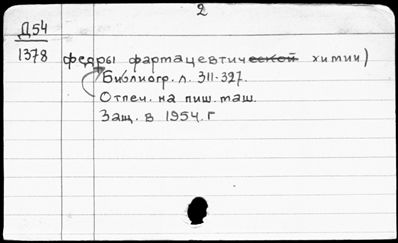 2
Д54
1378 федры фармацевтической химии)
Библиогр. л. 311-327.
Отпеч. на пиш. маш.
Защ. в 1954. г